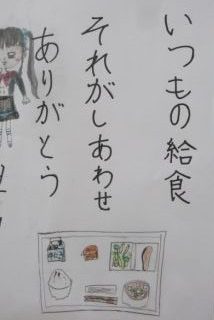 いつもの給食
それがしあわせ
ありがとう